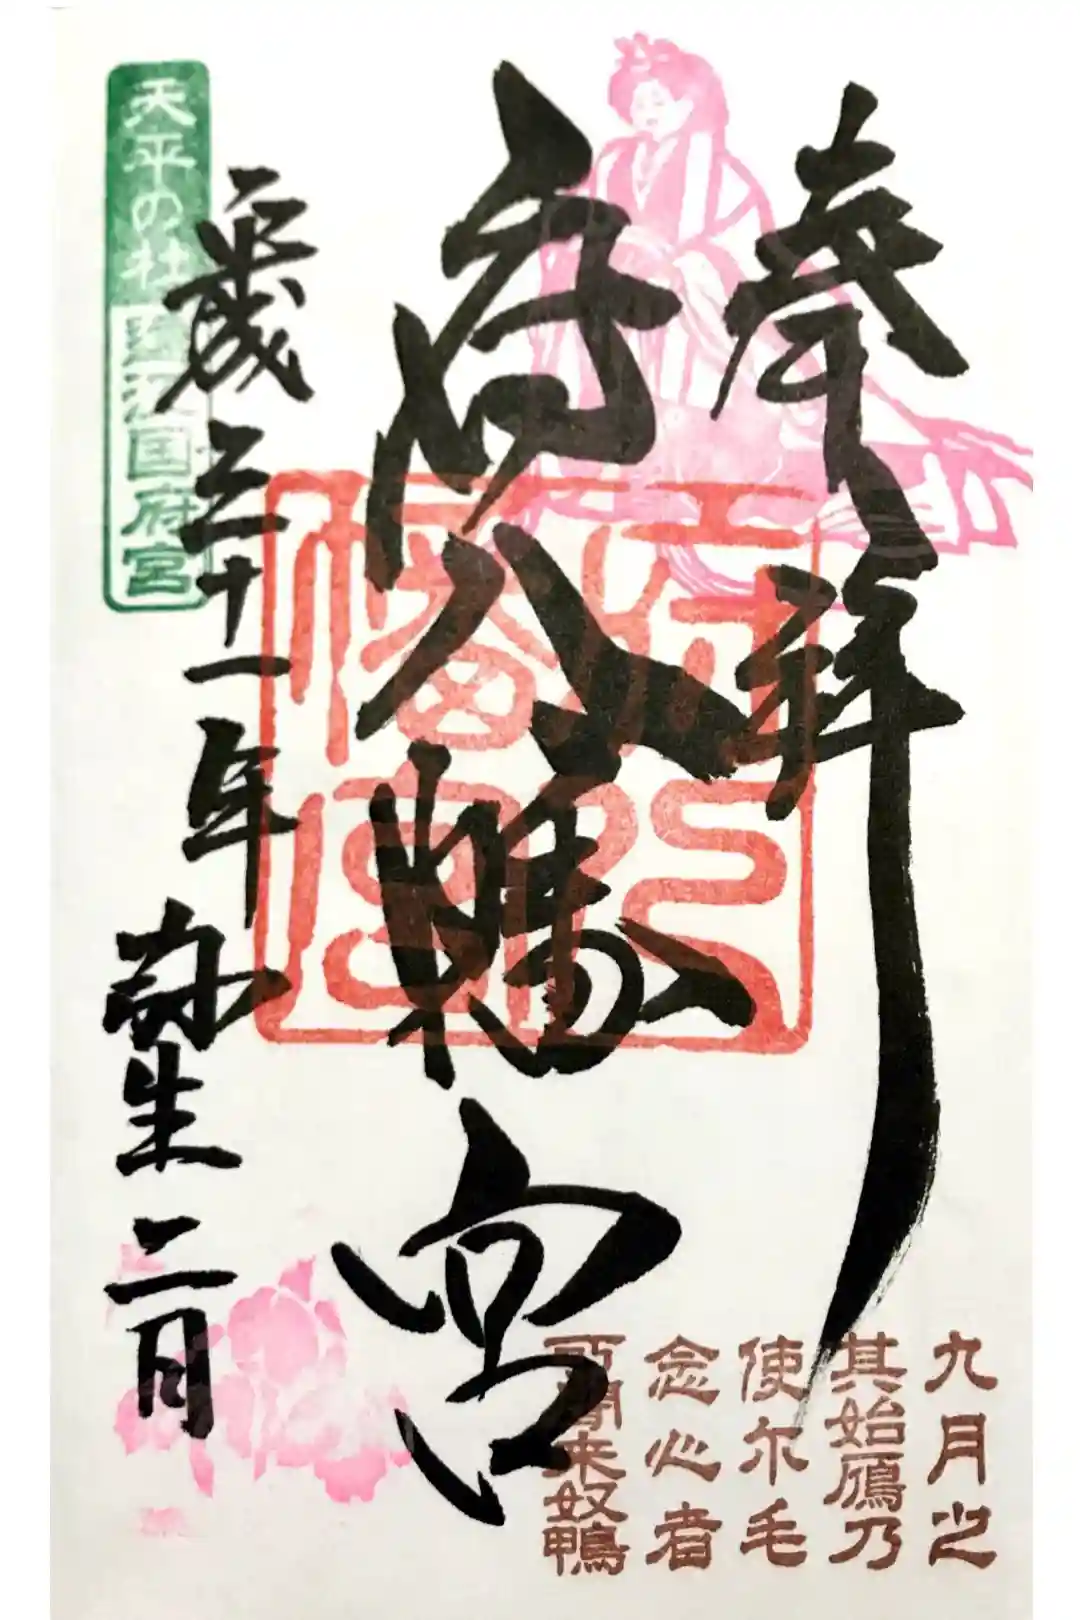 奉拝
府八幡宮
平成三十一年
弥生二月
天平の社
遠江国府宮
府八幡宮
九月之
其始鴈乃
使尓毛
念心者
可聞来奴鴨